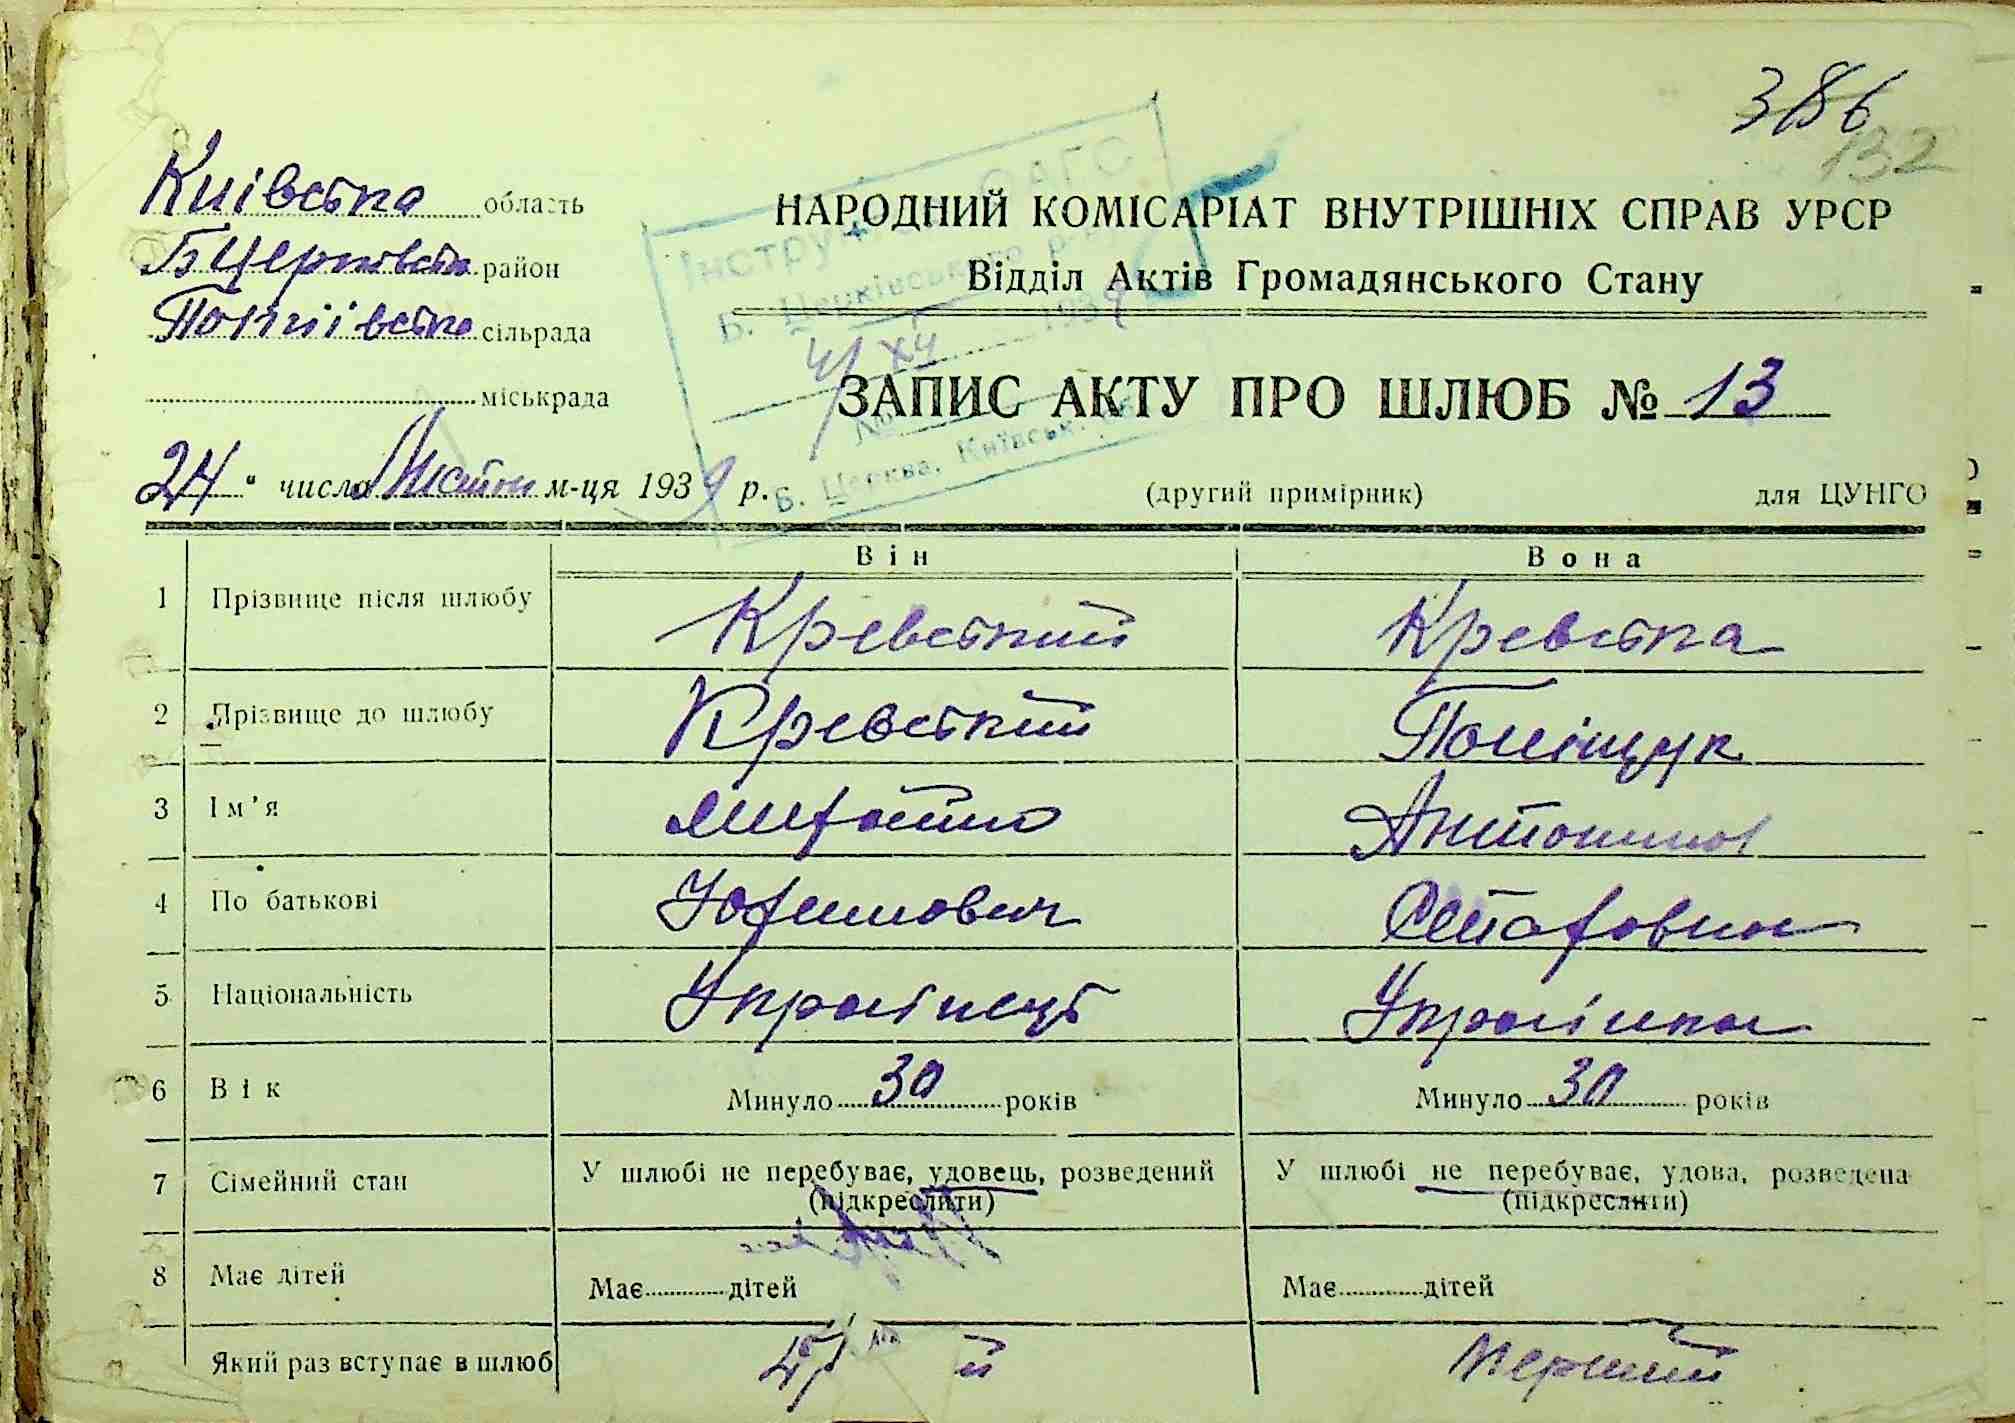 386
132
Київська область
НАРОДНИЙ КОМІСАРІАТ ВНУТРІШНІХ СПРАВ УРСР
БЦерковська район
Відділ Актів Громадянського Стану
сільрада
міськрада
ЗАПИС АКТУ ПРО ШЛЮБ № 13
24 " числа м-ця 1939 р.
(другий примірник) для ЦУНГО
Б. Церква, Київськ.
Він Вона
1 Прізвище після шлюбу Кревський Кревська
2 Прізвище до шлюбу Кревський Поліщук
3 Ім'я Михайло Антонина
4 По батькові Юхимович Остаповна
5 Національність Українець Українка
6 Вік Минуло 30 років Минуло 30 років
7 Сімейний стан У шлюбі не перебуває, удовець, розведений У шлюбі не перебуває, удова, розведена
(підкреслити) (підкреслити)
8 Має дітей Має дітей Має дітей
Який раз вступає в шлюб й перший